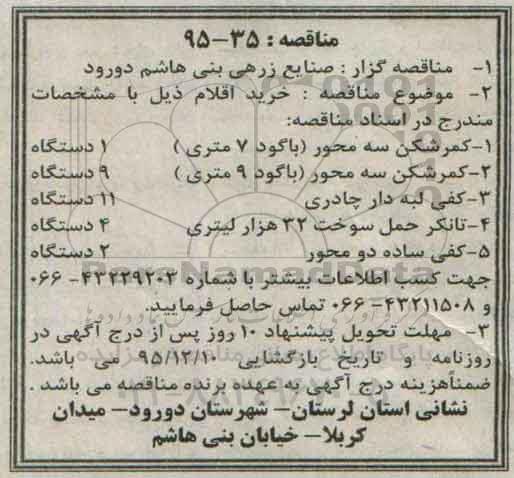 مناقصه : ۳۵-۹۵
۱- مناقصه گزار : صنایع زرهی بنی هاشم دورود
۲- موضوع مناقصه : خرید اقلام ذیل با مشخصات
مندرج در اسناد مناقصه:
۱-کمرشکن سه محور (باگود ۷ متری ) ۱ دستگاه
۲-کمرشکن سه محور (باگود ۹ متری ) ۹ دستگاه
۳-کفی لبه دار چادری ۱۱ دستگاه
۴-تانکر حمل سوخت ۳۲ هزار لیتری ۴ دستگاه
۵-کفی ساده دو محور ۲ دستگاه
جهت کسب اطلاعات بیشتر با شماره ۴۳۲۲۹۲۰۳- ۰۶۶
و ۴۳۲۱۱۵۰۸- ۰۶۶ تماس حاصل فرمایید.
۳- مهلت تحویل پیشنهاد ۱۰ روز پس از درج آگهی در
روزنامه و تاریخ بازگشایی ۹۵/۱۲/۱۰ می باشد.
ضمناًهزینه درج آگهی به عهده برنده مناقصه می باشد .
نشانی استان لرستان- شهرستان دورود- میدان
کربلا- خیابان بنی هاشم
ParsNamadData